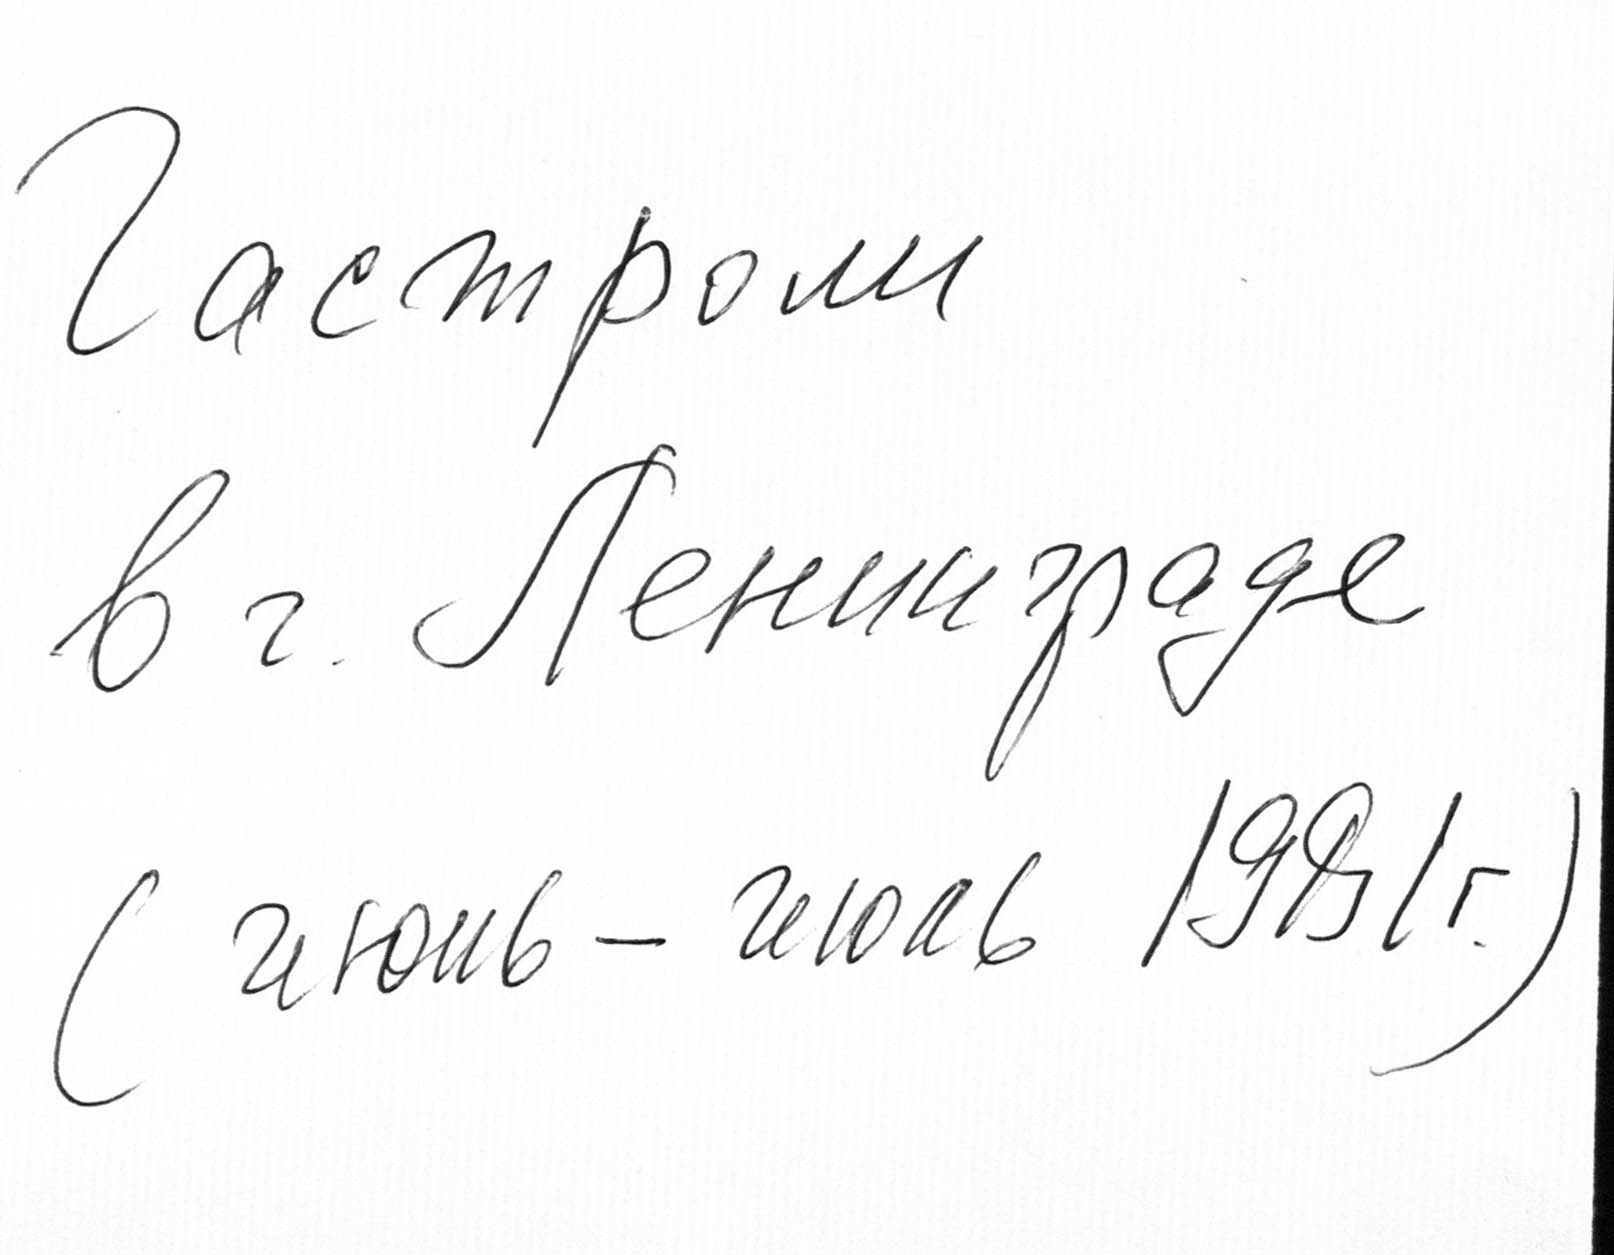 Гастроли
в г. Ленинграде
(июнь – июль 1981 г.)